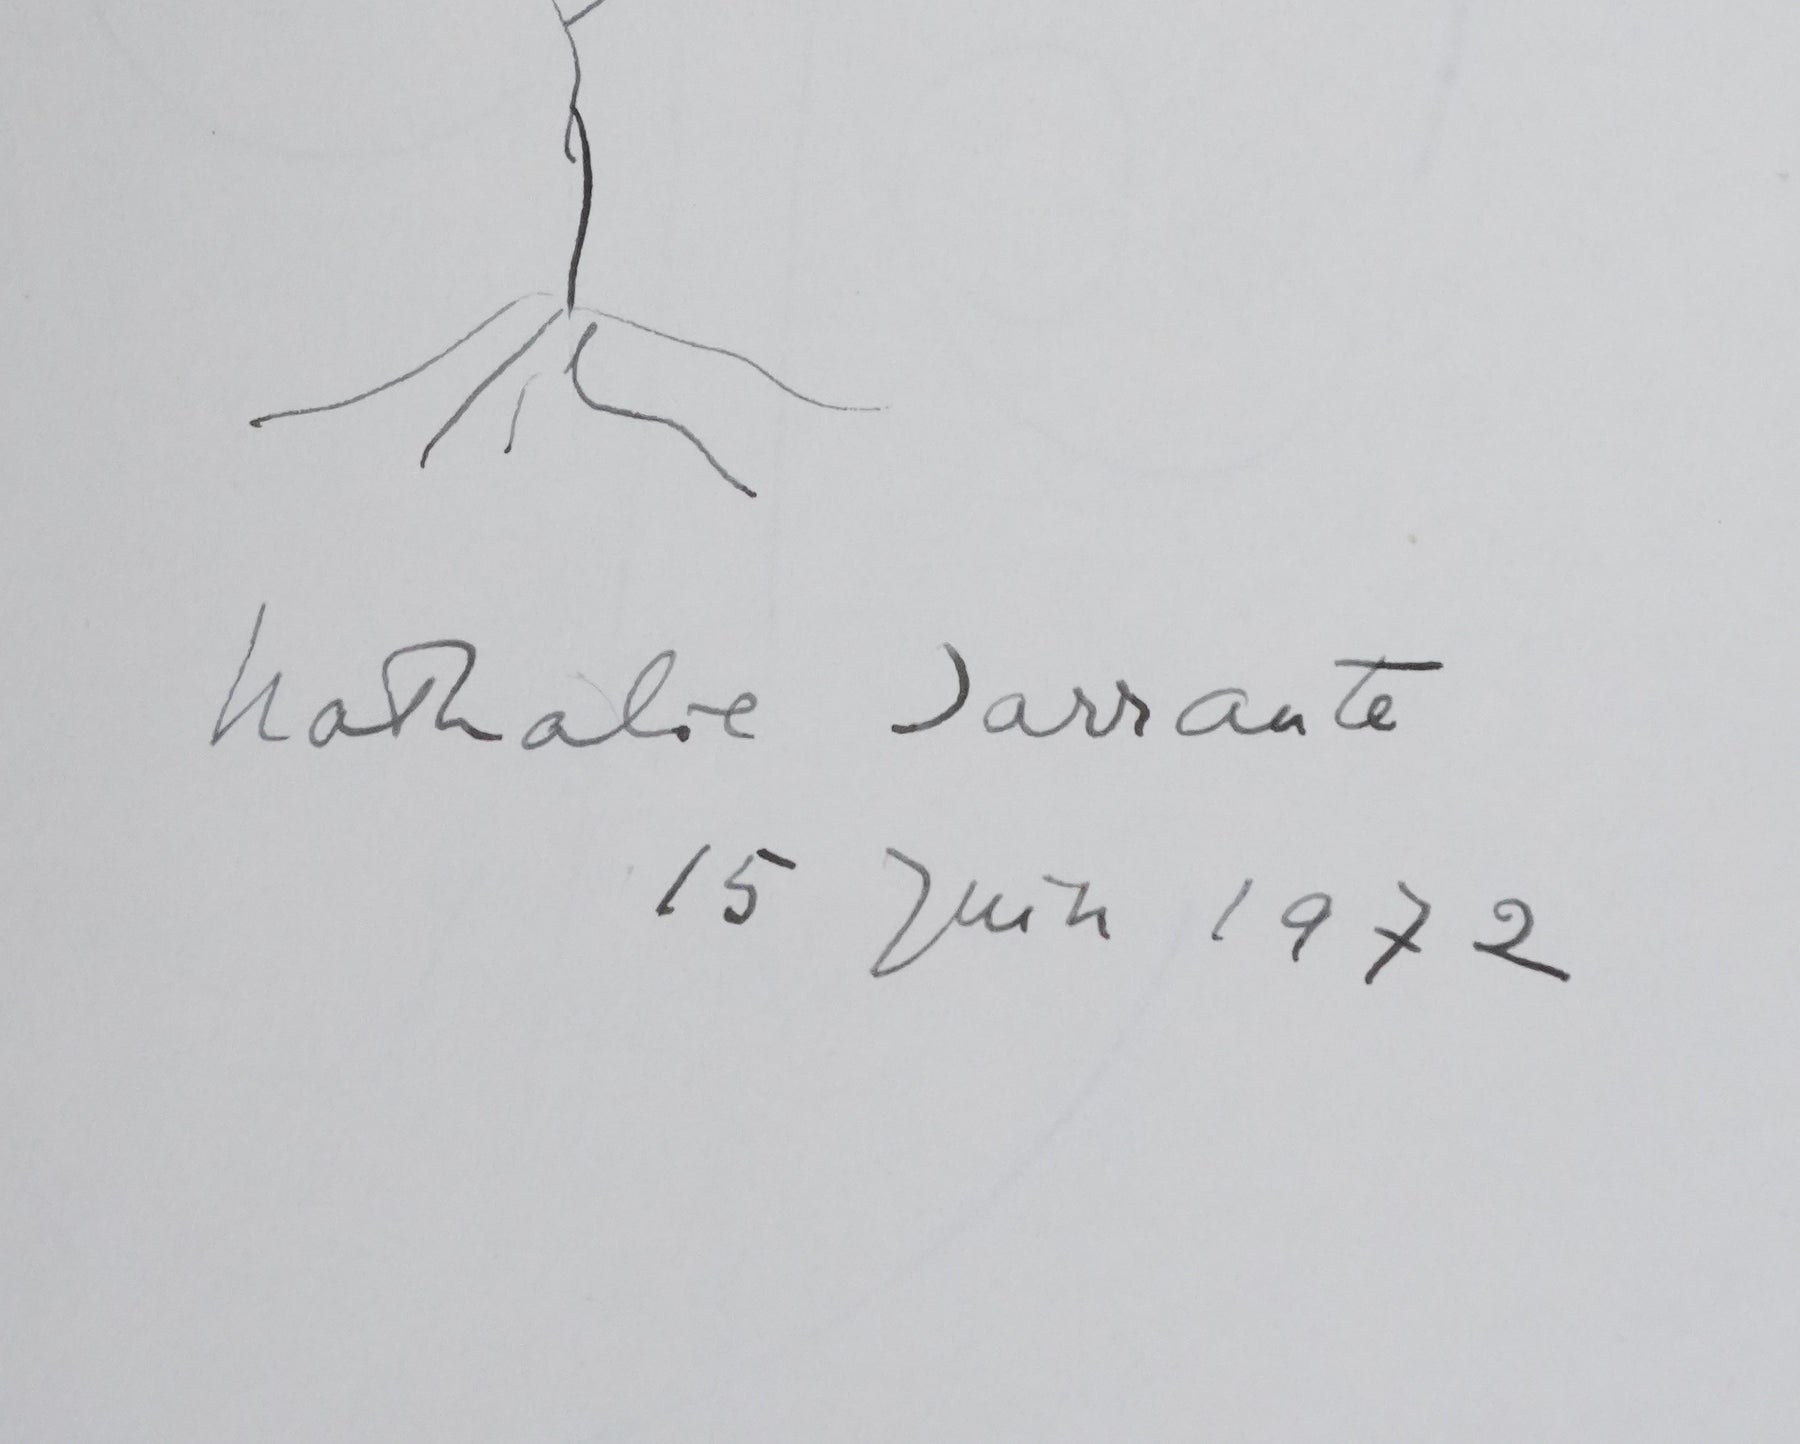 Nathalie Sarraute
15 Juin 1972